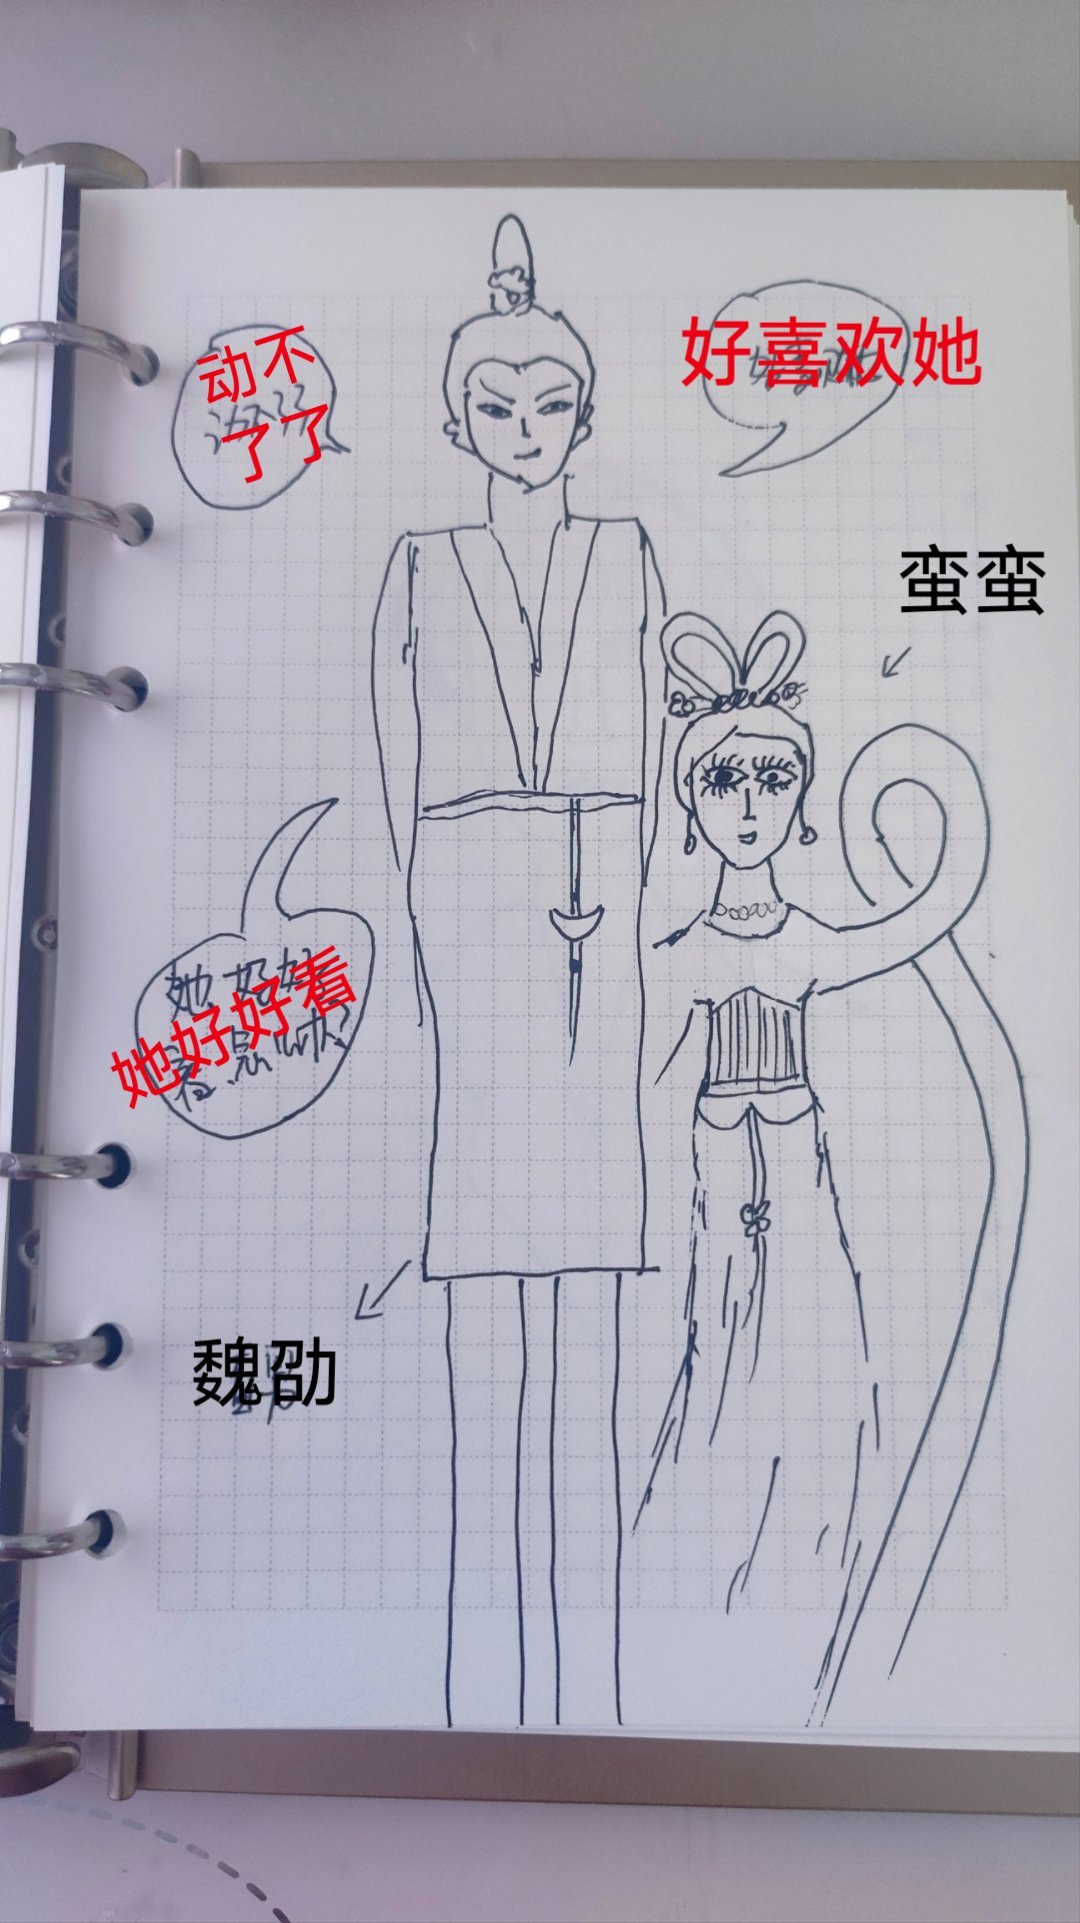 动不
了了
好喜欢她
蛮蛮
她好好看
魏劭